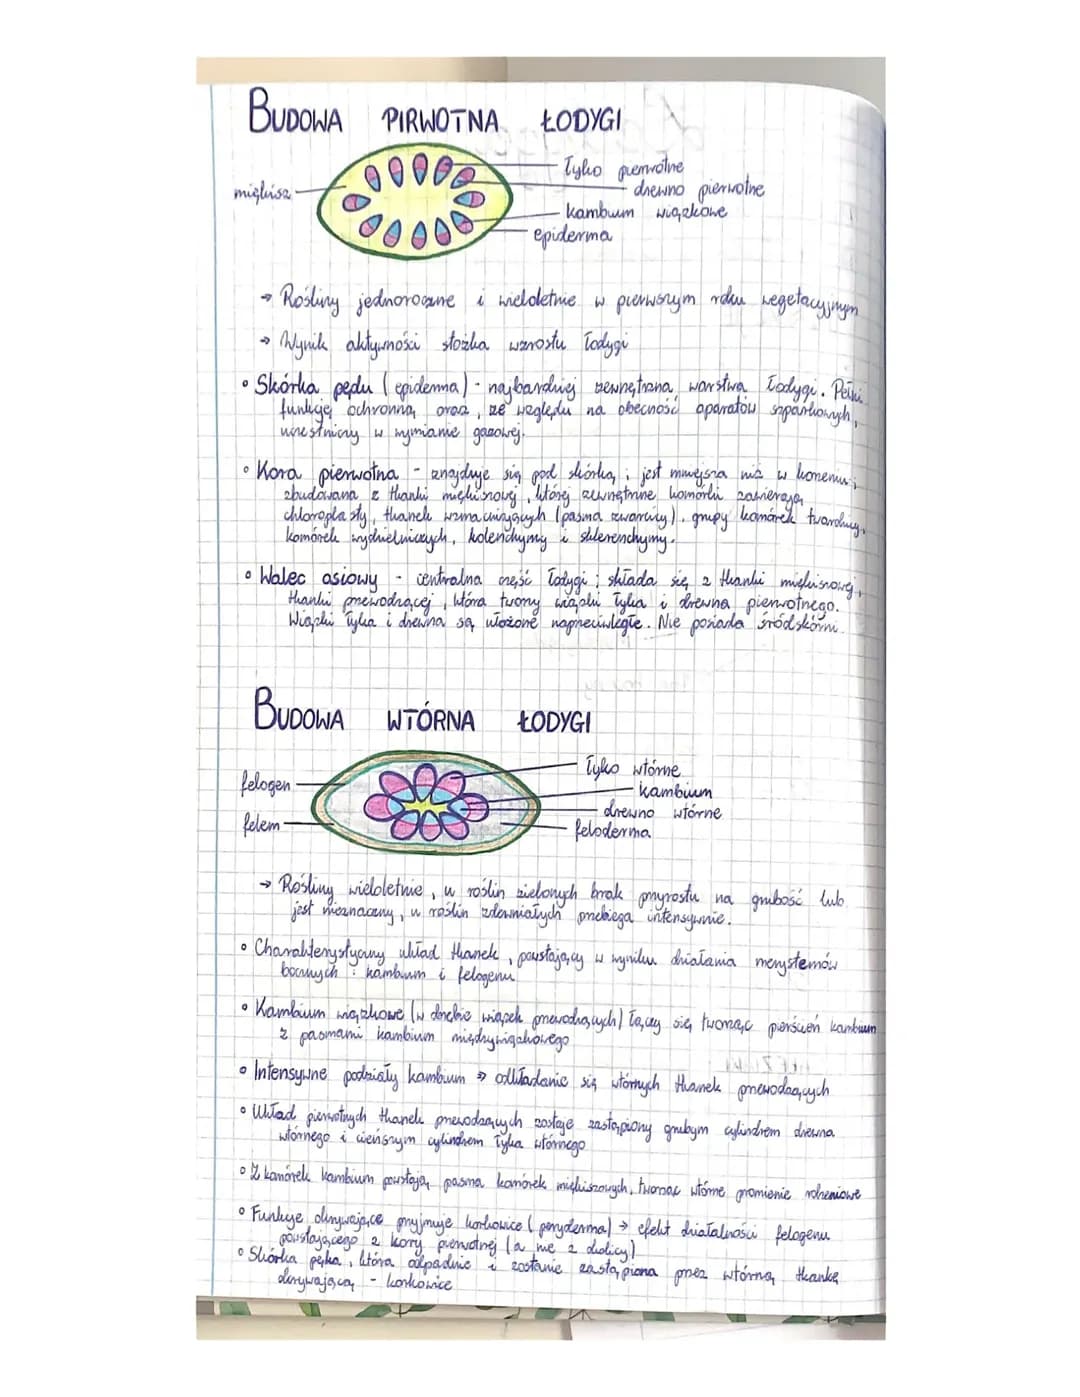 BUDOWA PIRWOTNA ŁODYGI
miękisz
Łyko pierwotne
drewno pierwotne
kambium wiązkowe
epiderma
→ Rośliny jednoroczne i wieloletnie w pierwszym roku wegetacyjnym
→ Wynik aktywności stożka wzrostu łodygi
• Skórka pędu (epiderma) - najbardziej zewnętrzna warstwa łodygi. Pełni
funkcję ochronną oraz, ze względu na obecność aparatów szparkowych,
uczestniczy w wymianie gazowej.
• Kora pierwotna - znajduje się pod skórką; jest mniejsza niż w korzeniu;
zbudowana z tkanki miękiszowej, której zewnętrzne komórki zawierają
chloroplasty, tkanek wzmacniających (pasma zwarcicy), grupy komórek twardzicy,
komórek wydzielniczych, kolenchymy i sklerenchymy.
• Walec osiowy - centralna część łodygi; składa się z tkanki miękiszowej,
tkanki przewodzącej, która tworzy wiązki łyka i drewna pierwotnego.
Wiązki łyka i drewna są ułożone naprzeciwległe. Nie posiada śródskórni.
BUDOWA WTÓRNA ŁODYGI
felogen
felem
Łyko wtórne
kambium
drewno wtórne
feloderma
→ Rośliny wieloletnie, u roślin zielonych brak przyrostu na grubość lub
jest nieznaczny, u roślin zdrewniałych przebiega intensywnie.
• Charakterystyczny układ tkanek, powstający w wyniku działania merystemów
bocznych: kambium i felogenu
• Kambium wiązkowe (w obrębie wiązek przewodzących) łączy się tworząc pierścień kambium
z pasmami kambium międzywiązkowego
• Intensywne podziały kambium → odkładanie się wtórnych tkanek przewodzących
• Układ pierwotnych tkanek przewodzących zostaje zastąpiony grubym cylindrem drewna
wtórnego i cieńszym cylindrem łyka wtórnego
• Z komórek kambium powstają pasma komórek miękiszowych, tworząc wtórne promienie rdzeniowe
• Funkcje okrywające przyjmuje korkowica (peryderma) → efekt działalności felogenu
powstającego z kory pierwotnej (a nie z okolicy)
• Skórka pęka, która odpadnie i zostanie zastąpiona przez wtórną tkankę
okrywającą - korkowicę